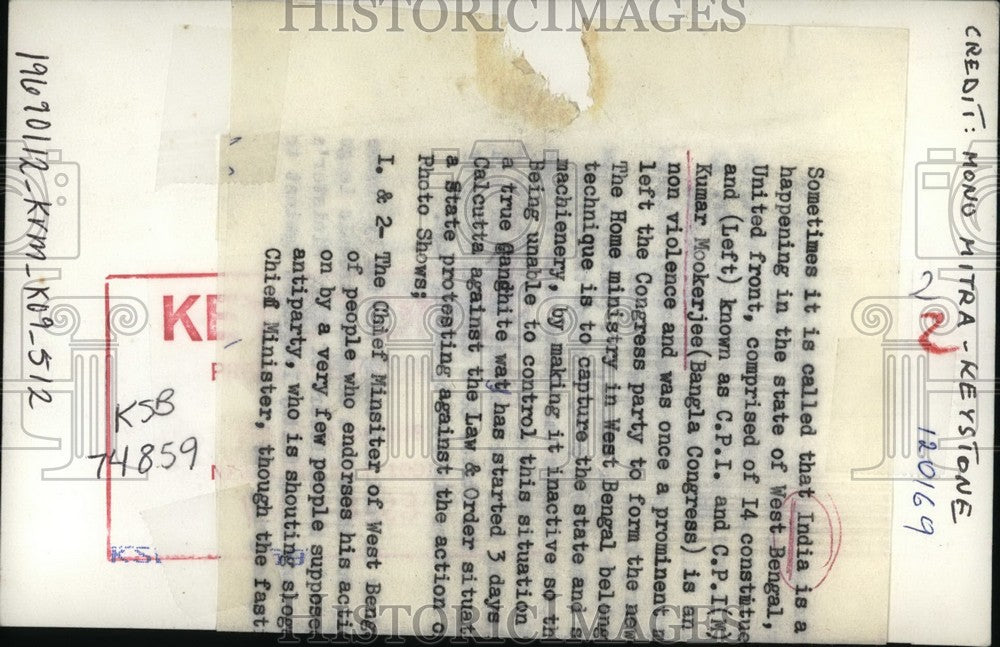 Sometimes it is called that India is a
happening in the state of West Bengal,
United front, comprised of I4 constitue
and (Left) known as C.P.I. and C.P.I(M)
Kumar Mookerjee(Bangla Congress) is an
non violence and was once a prominent m
left the Congress party to form the new
The Home ministry in West Bengal belong
technique is to capture the state and s
machienery, by making it inactive so th
Being unable to control this situation
a true Gandhite way has started 3 days
Calcutta against the Law & Order situat
a state protesting against the action o
Photo Shows;
I. & 2- The Chief Minsiter of West Beng
of people who endorses his acti
on by a very few people suppose
antiparty, who is shouting slog
Chief Minister, though the fast
CREDIT: MONO MITRA - KEYSTONE
2
120169
KE
KSB
74859
19690112-KRM-K09-512
HISTORICIMAGES
HISTORICIMAGES